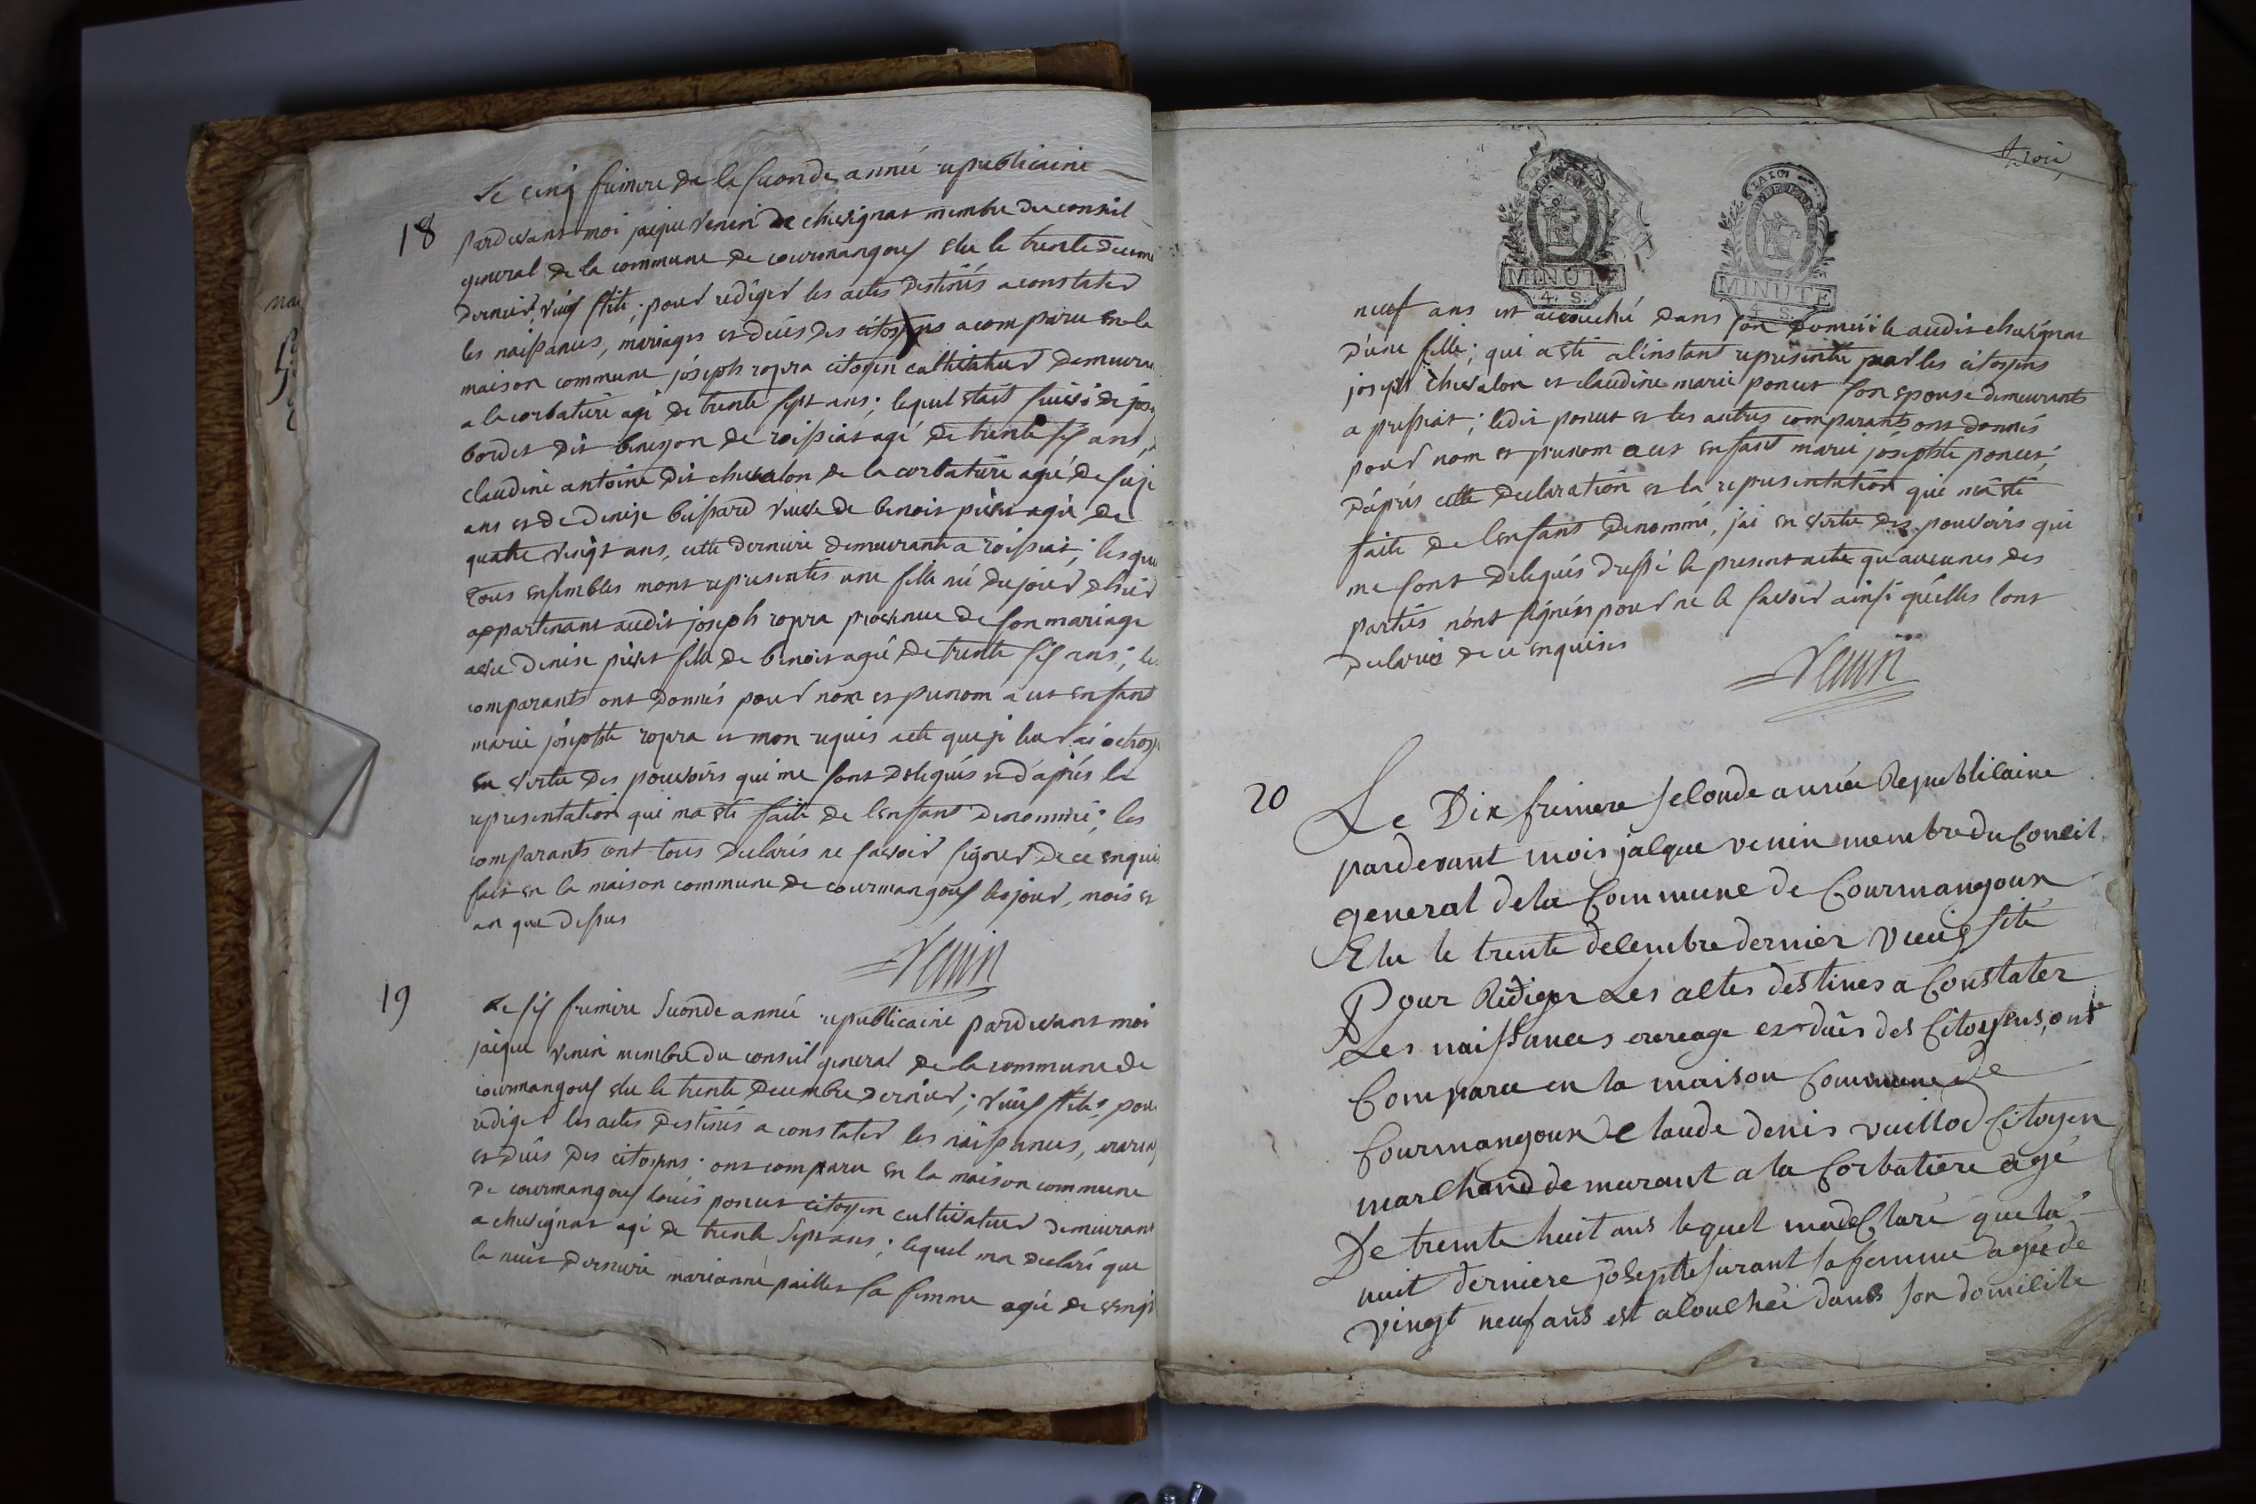 Le cinq frimere de la seconde année republicaine
18
pardevant moi jacque venin de chevignat membre du conseil
general de la commune de courmangoux elu le trente decem
dernier, vieux stile; pour rediger les actes destinés a constater
les naissances, mariages et deces des citoyens a comparu en la
maison commune joseph ropra citoyen cultivateur demeuran
a la corbatiere agé de trente sept ans; lequel etait suivi de jose
bordet dit de roissiat agé de trente six ans,
claudine antoine dit chevalon de la corbatiere agé de
ans et de denise buissard veuve de benoit agée de
quatre vingt ans, cette derniere demeurante a roissiat; lesque
tous ensembles mont representés une fille né du jour dhier
appartenant audit joseph ropra provenue de son mariage
avec denise fille de benoit agé de trente six ans; les
comparants ont donnés pour nom et prenom a cet enfant
marie josephte ropra et mon requis acte que je leur ai octroy
en vertu des pouvoirs qui me sont delegués et d'aprés la
representation qui ma eté faite de lenfant denommé; les
comparants ont tous declarés ne savoir signer de ce enquis
fait en la maison commune de courmangoux les jour, mois et
an que dessus
Venin
19
Le six frimere seconde année republicaine pardevant moi
jacque venin membre du conseil general de la commune de
courmangoux elu le trente decembre dernier; vieux stile, pour
rediger les actes destinés a constater les naissances, mariag
et deces des citoyens; ont comparu en la maison commune
de courmangoux louis poncet citoyen cultivateur demeurant
a chevignat agé de trente sept ans; lequel ma declaré que
la nuit derniere marianne paillet sa femme agée de vingt
trois
LA LOI
MINUTE
4. S.
LA LOI
MINUTE
4. S.
neuf ans est accouché dans son domicile audit chevignat
d'une fille; qui a eté a l'instant representée par les citoyens
joseph chevalon et claudine marie poncet son epouse demeurants
a pressiat; ledit poncet et les autres comparants ont donnés
pour nom et prenom a cet enfant marie josephte poncet,
d'aprés cette declaration et la representation qui ma eté
faite de lenfant denommé, j'ai en vertu des pouvoirs qui
me sont delegués dressé le present acte qu'aucunes des
parties n'ont signées pour ne le savoir ainsi qu'elles lont
declarés de ce enquises
Venin
20
Le Dix frimere seconde année Republicaine
pardevant mois jacque venin membre du Conseil
general de la Commune de Courmangoux
Elu le trente decembre dernier vieux stile
Pour Rédiger Les actes destines a Constater
Les naissances mreage et deces des Citoyens, ont
Comparu en la maison Commune de
Courmangoux Claude denis vuillod Citoyen
marchand demurant a la Corbatiere agé
De trente huit ans lequel ma declaré que la
nuit derniere josephte surant sa femme agée de
vingt neuf ans est acouchée dans son domicile